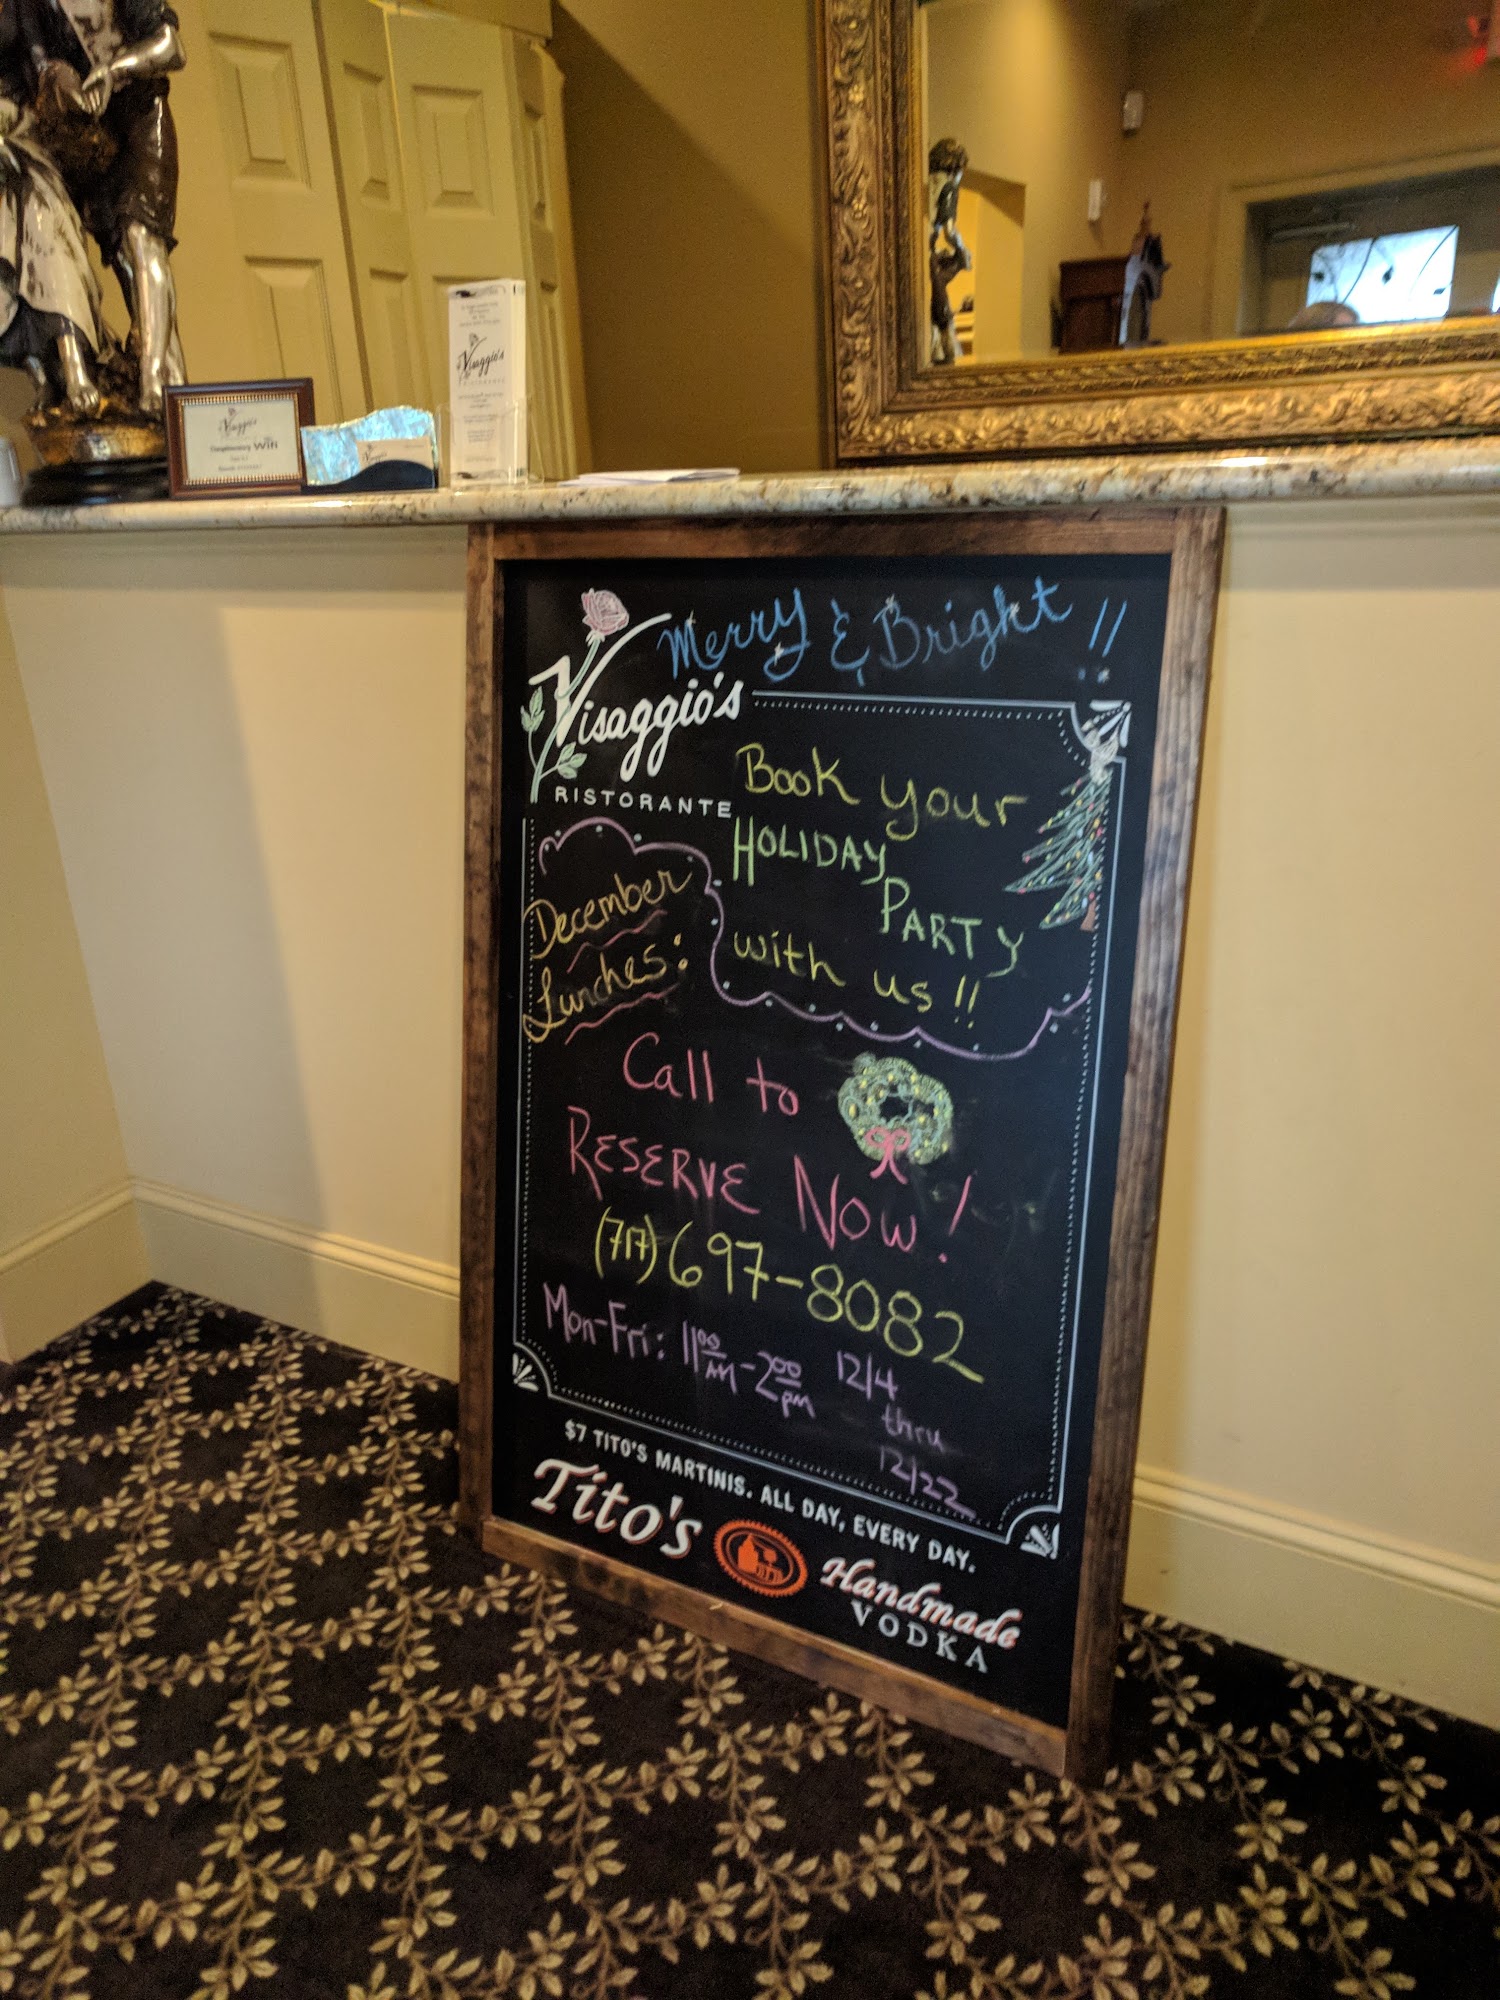 Visaggio's
Complimentary WiFi
Visaggio's
Visaggio's
RISTORANTE
Merry & Bright!!
Visaggio's
RISTORANTE
Book your
HOLIDAY
PARTY
with us!!
December
Lunches:
Call to
RESERVE NOW!
(717) 697-8082
Mon-Fri: 1100 AM - 200 pm
12/4
thru
12/22
$7 TITO'S MARTINIS. ALL DAY, EVERY DAY.
Tito's
Handmade
VODKA